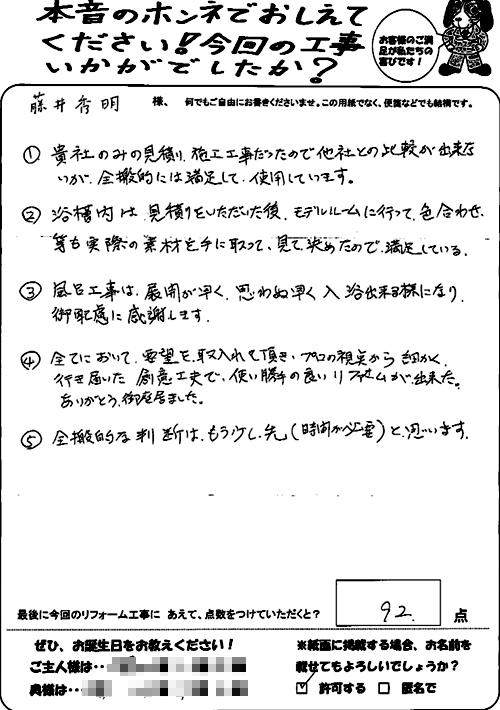 本音のホンネでおしえて
ください!今回の工事
いかがでしたか?
お客様のご満
足が私たちの
喜びです!
藤井秀明 様、 何でもご自由にお書きくださいませ。この用紙でなく、便箋などでも結構です。
① 貴社のみの見積り、施工工事だったので他社との比較が出来な
いが、全搬的には満足して、使用しています。
② 浴槽内は、見積りをいただいた後、モデルルームに行って、色合わせ、
等も実際の素材を手に取って、見て決めたので、満足している。
③ 風呂工事は、展開が早く、思わぬ早く入浴出来る様になり、
御配慮に感謝します。
④ 全てにおいて、要望を取入れて頂き、プロの視点から細かく、
行き届いた創意工夫で、使い勝手の良いリフォームが出来た。
ありがとう御座居ました。
⑤ 全搬的な判断は、もう少し先(時間が必要)と思います。
最後に今回のリフォーム工事に あえて、点数をつけていただくと? 92. 点
ぜひ、お誕生日をお教えください!
ご主人様は・・
奥様は・・
※紙面に掲載する場合、お名前を
載せてもよろしいでしょうか?
☑ 許可する □ 匿名で